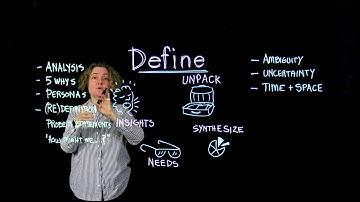 Define
- ANALYSIS
- 5 WHYS
- PERSONAS
- (RE)DEFINITION
PROBLEM STATEMENTS
"HOW MIGHT WE...?"
INSIGHTS
UNPACK
SYNTHESIZE
NEEDS
- AMBIGUITY
- UNCERTAINTY
- TIME + SPACE